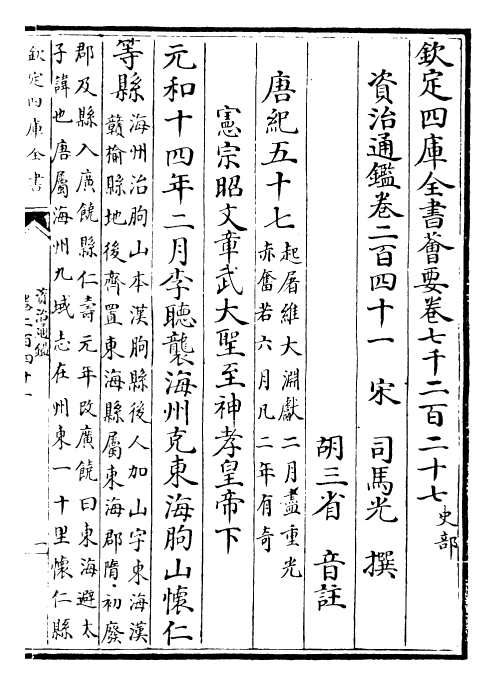 欽定四庫全書薈要卷七千二百二十七 史部
資治通鑑卷二百四十一 宋 司馬光 撰
胡三省 音註
唐紀五十七 起屠維大淵獻二月盡重光
赤奮若六月凡二年有奇
憲宗昭文章武大聖至神孝皇帝下
元和十四年二月李聽襲海州克東海朐山懷仁
等縣 海州治朐山本漢朐縣後人加山字東海漢
贛榆縣地後齊置東海縣屬東海郡隋初廢
郡及縣入廣饒縣仁壽元年改廣饒曰東海避太
子諱也唐屬海州九域志在州東一十里懷仁縣
欽定四庫全書
資治通鑑
卷二百四十一
一